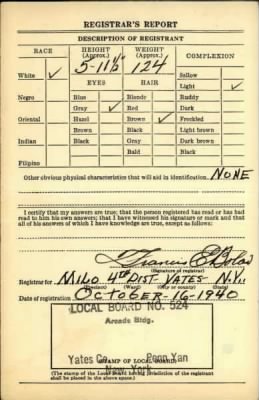 REGISTRAR'S REPORT
DESCRIPTION OF REGISTRANT
RACE HEIGHT (Approx.) WEIGHT (Approx.) COMPLEXION
5-11½ 124
White ✓ EYES HAIR Sallow
Light ✓
Negro Blue Blonde Ruddy
Gray ✓ Red Dark
Oriental Hazel Brown ✓ Freckled
Brown Black Light brown
Indian Black Gray Dark brown
Bald Black
Filipino
Other obvious physical characteristics that will aid in identification NONE
I certify that my answers are true; that the person registered has read or has had
read to him his own answers; that I have witnessed his signature or mark and that
all of his answers of which I have knowledge are true, except as follows:
Francis E.
(Signature of registrar)
Registrar for MILO 4TH DIST YATES N.Y.
(Precinct) (Ward) (City or county) (State)
Date of registration OCTOBER-16-1940
LOCAL BOARD NO. 524
Arcade Bldg.
Yates Co. Penn Yan
(STAMP OF LOCAL BOARD)
New York
(The stamp of the Local Board having jurisdiction of the registrant
shall be placed in the above space.)